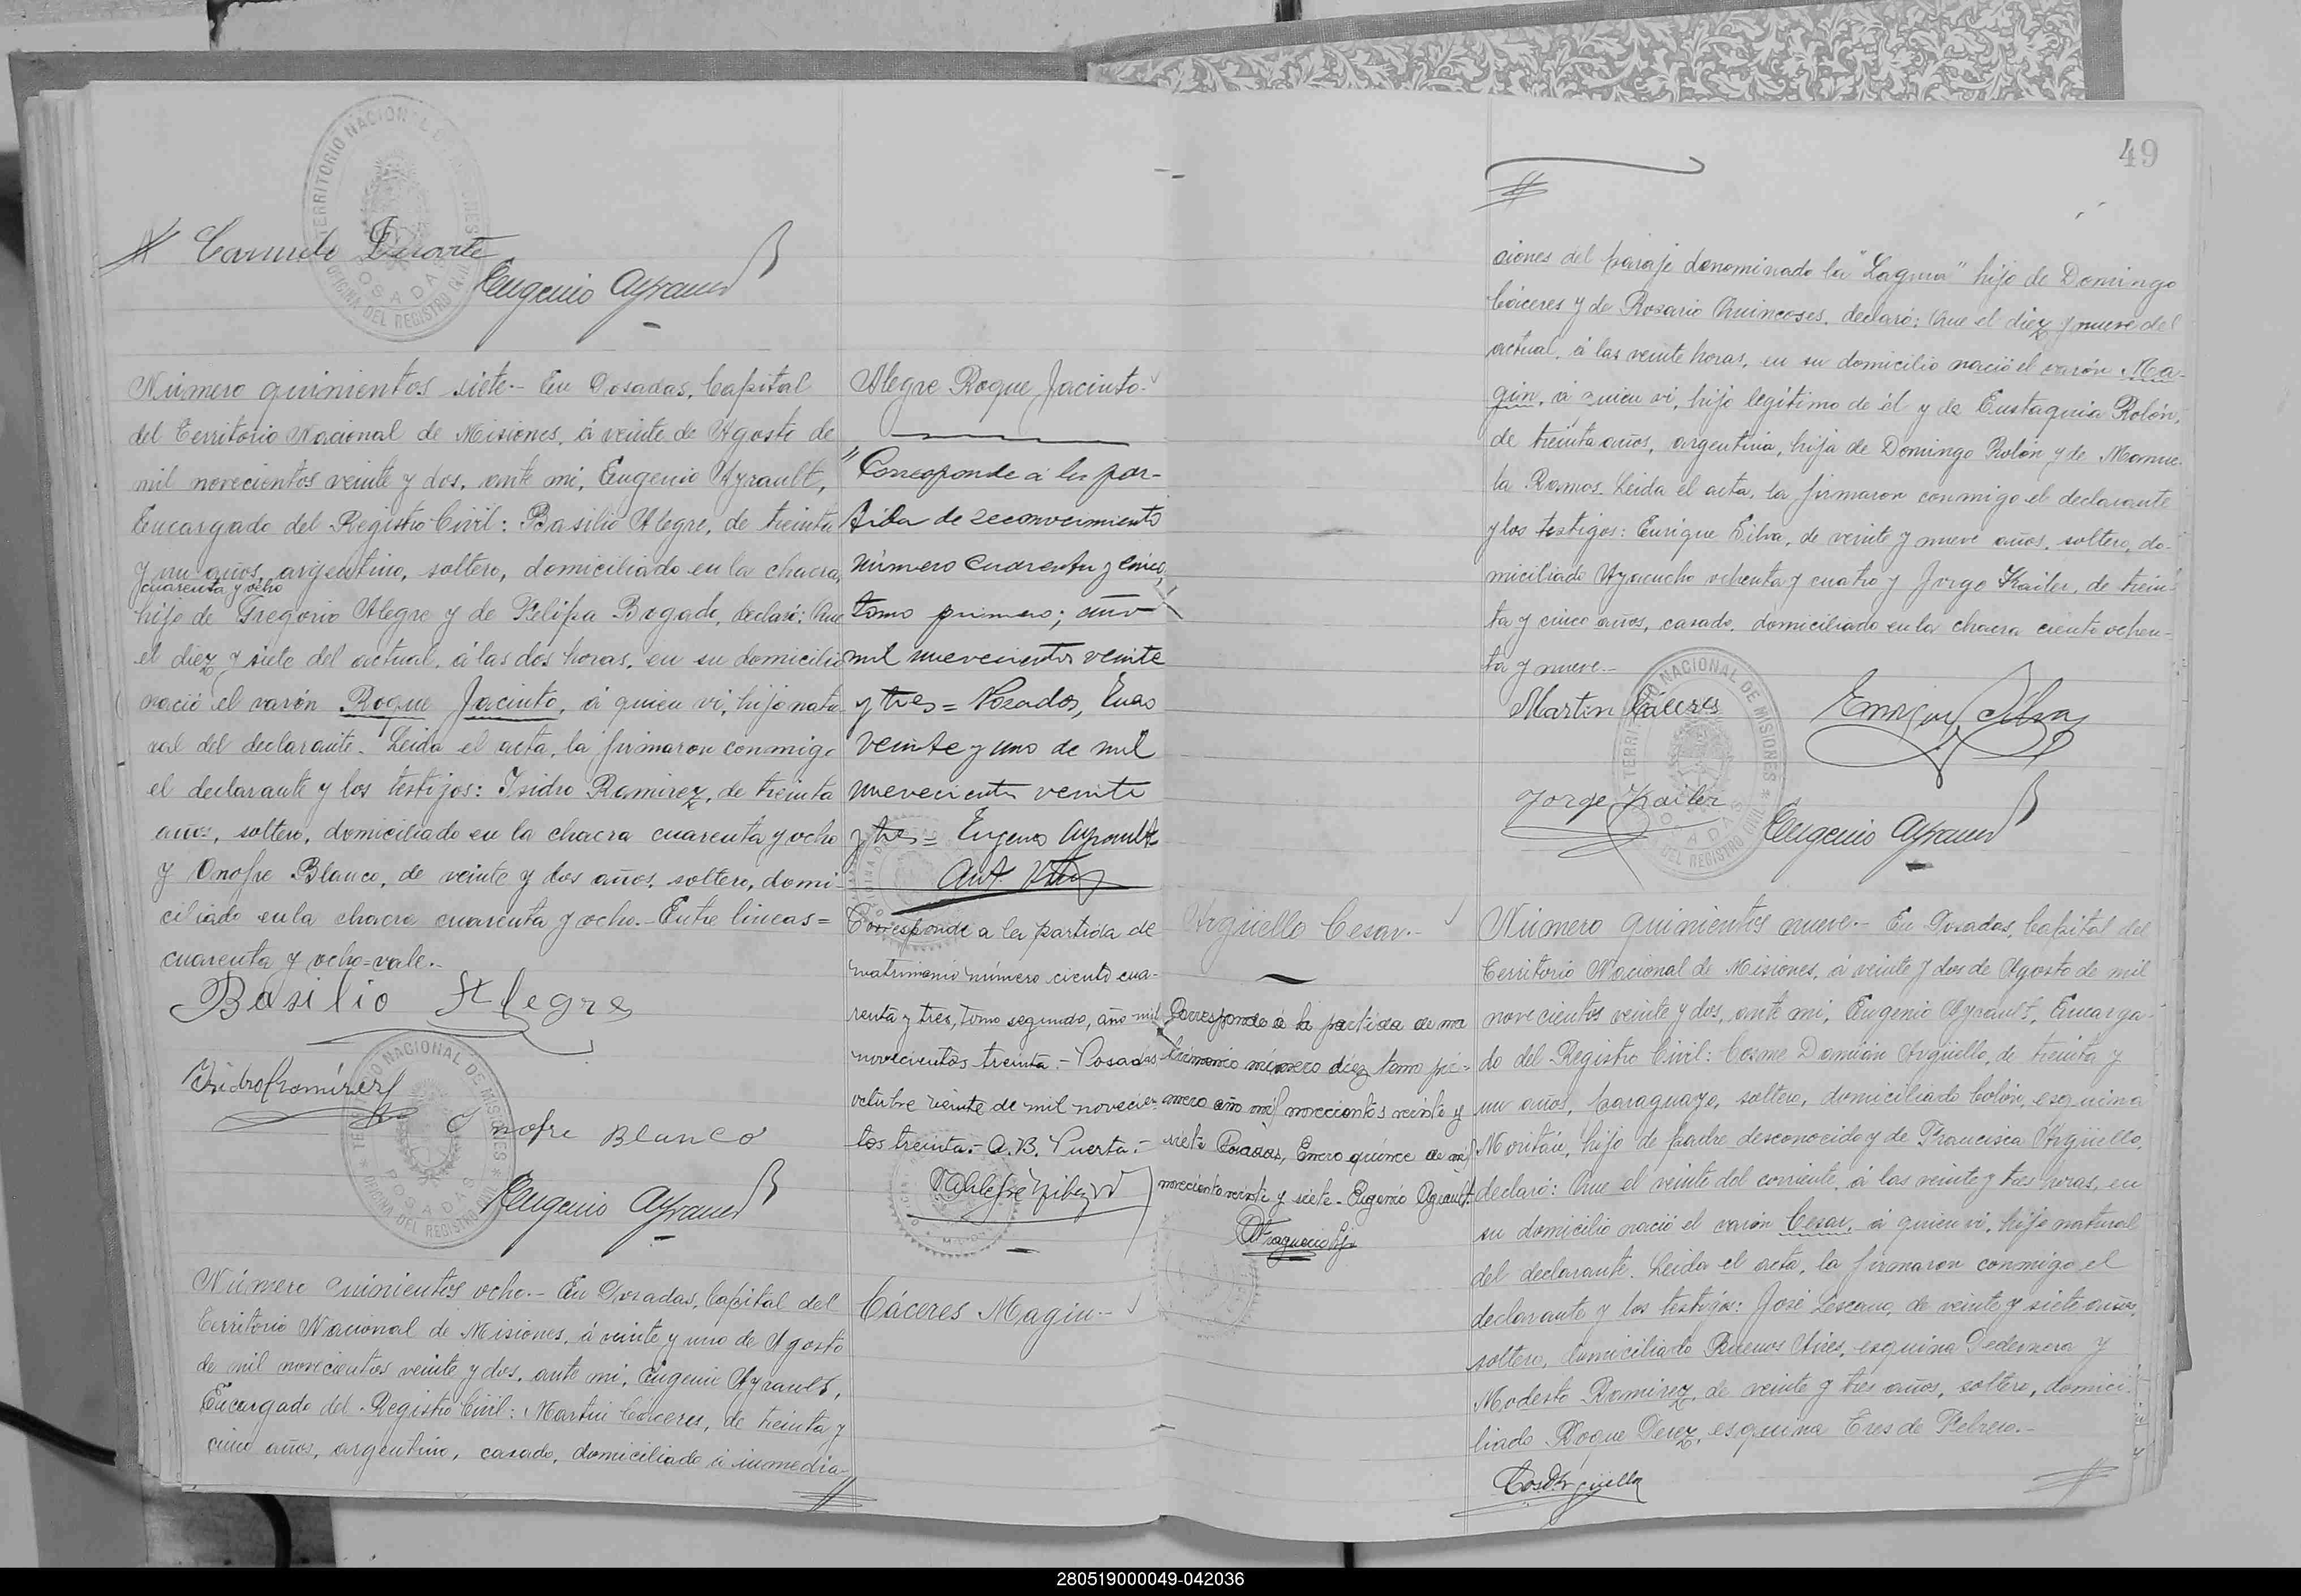 Eugenio Ayrault
Número quinientos siete.- En Posadas, Capital
del Territorio Nacional de Misiones, á veinte de Agosto de
mil novecientos veinte y dos, ante mi, Eugenio Ayrault,
Encargado del Registro Civil: Basilio Alegre, de treinta
y un años, argentino, soltero, domiciliado en la chacra
cuarenta y ocho
hijo de Gregorio Alegre y de Felipa Bogado, declaró: Que
el diez y siete del actual, á las dos horas, en su domicilio
nació el varón Roque Jacinto, á quien vi, hijo natu-
ral del declarante. Leida el acta, la firmaron conmigo
el declarante y los testigos: Isidro Ramirez, de treinta
años, soltero, domiciliado en la chacra cuarenta y ocho
y Onofre Blanco, de veinte y dos años, soltero, domi-
ciliado en la chacra cuarenta y ocho.- Entre lineas=
cuarenta y ocho=vale.-
Basilio Alegre
Isidro Ramirez
Onofre Blanco
Eugenio Ayrault
Número quinientos ocho.- En Posadas, Capital del
Territorio Nacional de Misiones, á veinte y uno de Agosto
de mil novecientos veinte y dos, ante mi, Eugenio Ayrault,
Encargado del Registro Civil: Martin Cáceres, de treinta y
cinco años, argentino, casado, domiciliado á inmedia-
Alegre Roque Jacinto.-
Corresponde á la par-
tida de reconocimiento
número cuarenta y cinco,
tomo primero; año
mil nuevecientos veinte
y tres= Posadas,
veinte y uno de mil
nuevecientos veinte
y tres= Eugenio Ayrault
Corresponde a la partida de
matrimonio número ciento cua-
renta y tres, tomo segundo, año mil
novecientos treinta.- Posadas,
octubre veinte de mil novecien-
tos treinta.- A. B. Puerta.-
Cáceres Magin.-
Argüello Cesar.-
Corresponde á la partida de ma
trimonio número diez tomo pri-
mero año mil novecientos veinte y
siete Posadas, Enero quince de mil
novecientos veinte y siete - Eugenio Ayrault
49
ciones del paraje denominado la "Laguna" hijo de Domingo
Cáceres y de Rosario Quincoses, declaró: Que el diez y nueve del
actual, á las veinte horas, en su domicilio nació el varón Ma-
gin, á quien vi, hijo legítimo de él y de Eustaquia Rolón,
de treinta años, argentina, hija de Domingo Rolón y de Manue-
la Ramos. Leida el acta, la firmaron conmigo el declarante
y los testigos: Enrique Silva, de veinte y nueve años, soltero, do-
miciliado Ayacucho ochenta y cuatro y Jorge Kailer, de trein-
ta y cinco años, casado, domiciliado en la chacra ciento ochen-
ta y nueve.-
Martin Cáceres Enrique Silva
Jorge Kailer
Eugenio Ayrault
Número quinientos nueve.- En Posadas, Capital del
Territorio Nacional de Misiones, á veinte y dos de Agosto de mil
novecientos veinte y dos, ante mi, Eugenio Ayrault, Encarga-
do del Registro Civil: Cosme Damián Argüello, de treinta y
un años, paraguayo, soltero, domiciliado Colón, esquina
Moritán, hijo de padre desconocido y de Francisca Argüello,
declaró: Que el veinte del corriente, á las veinte y tres horas, en
su domicilio nació el varón Cesar, á quien vi, hijo natural
del declarante. Leida el acta, la firmaron conmigo el
declarante y los testigos: José Lescano, de veinte y siete años,
soltero, domiciliado Buenos Aires, esquina Pedernera y
Modesto Ramirez, de veinte y tres años, soltero, domici-
liado Roque Perez, esquina Tres de Febrero.-
280519000049-042036